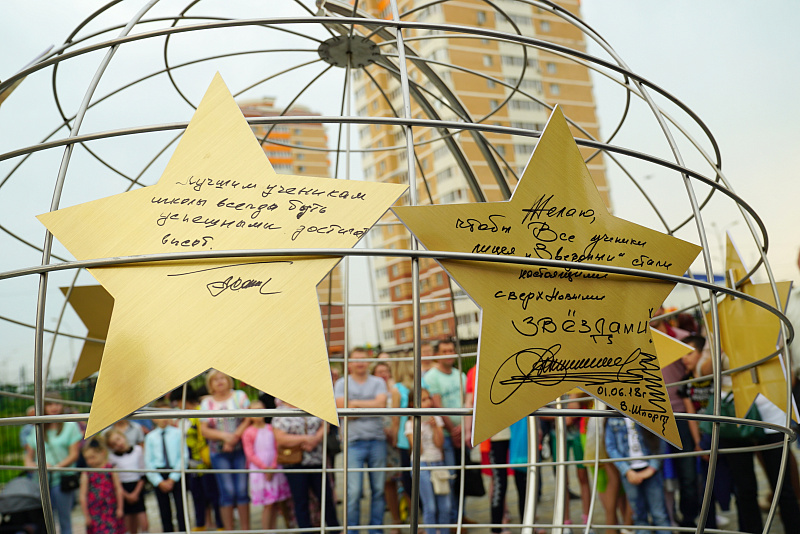 Лучшим ученикам
школы всегда быть
успешными достигат
высот.
Желаю,
чтобы Все ученики
лицея "Звездный" стали
настоящими
сверхНовыми
ЗВЁЗДАМИ!
01.06.18г